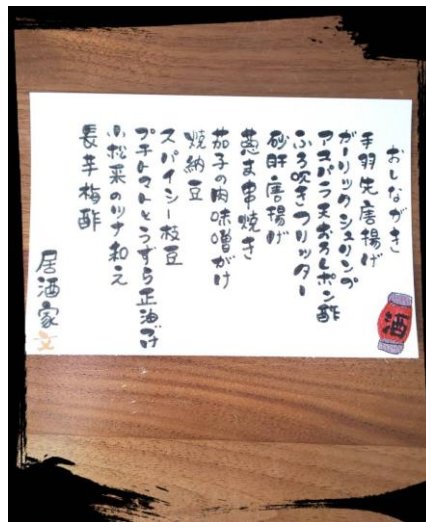 おしながき
手羽先唐揚げ
ガーリックシュリンプ
アスパラ天おろしポン酢
ふろ吹きフリッター
砂肝唐揚げ
葱ま串焼き
茄子の肉味噌がけ
焼納豆
スパイシー枝豆
プチトマトとうずら正油づけ
小松菜のツナ和え
長芋梅酢
居酒家
文
酒